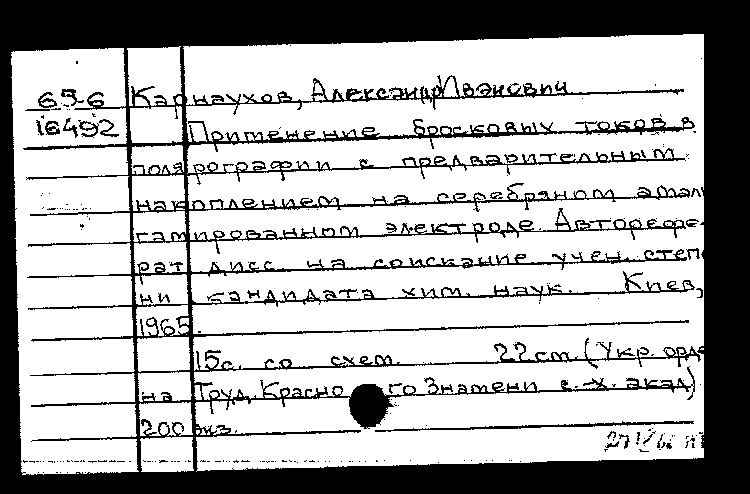 65-6 Карнаухов, Александр Иванович
16492 Применение бросковых токов в
полярографии с предварительным
накоплением на серебряном амаль
гамированном электроде. Авторефе-
рат дисс. на соискание учен. степе
ни кандидата хим. наук. Киев,
1965.
15с. со схем. 22 см. (Укр. орде
на Труд. Красно го Знамени с.-х. акад)
200 экз.